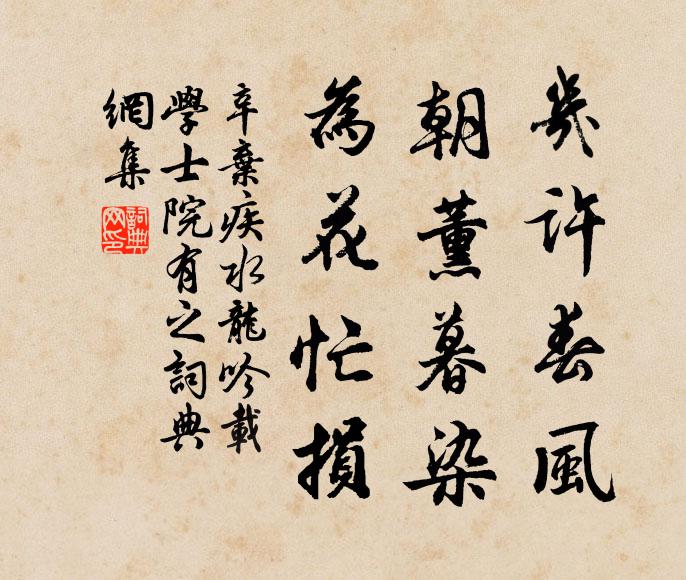 幾許春風
朝薰暮染
為花忙損
辛棄疾水龍吟載
學士院有之詞典
網集
詞典網印